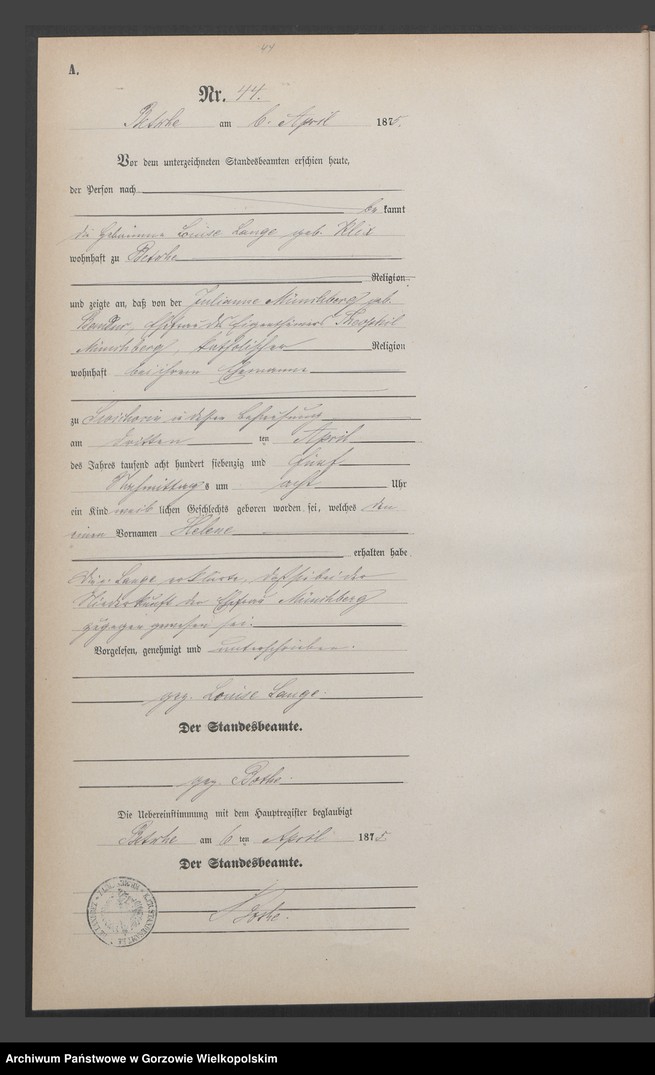 44
A.
Nr. 44.
Betsche am 6. April 1875.
Vor dem unterzeichneten Standesbeamten erschien heute,
der Person nach
be kannt
die Hebamme Louise Lange geb. Klix
wohnhaft zu Betsche
Religion,
und zeigte an, daß von der Julianne Münchberg geb.
Ehefrau des Eigenthümers Theophil
Münchberg, katholischer Religion
wohnhaft bei ihrem Ehemanne
zu in dessen Behausung
am dritten ten April
des Jahres tausend acht hundert siebenzig und fünf
Nachmittags um acht Uhr
ein Kind weib lichen Geschlechts geboren worden sei, welches den
einen Vornamen Helene
erhalten habe
Die. Lange erklärte, daß sie bei der
Niederkunft der Ehefrau Münchberg
zugegen gewesen sei.
Vorgelesen, genehmigt und unterschrieben.
gez. Louise Lange.
Der Standesbeamte.
gez. Bothe.
Die Uebereinstimmung mit dem Hauptregister beglaubigt
Betsche am 6 ten April 1875
Der Standesbeamte.
Bothe.
Archiwum Państwowe w Gorzowie Wielkopolskim